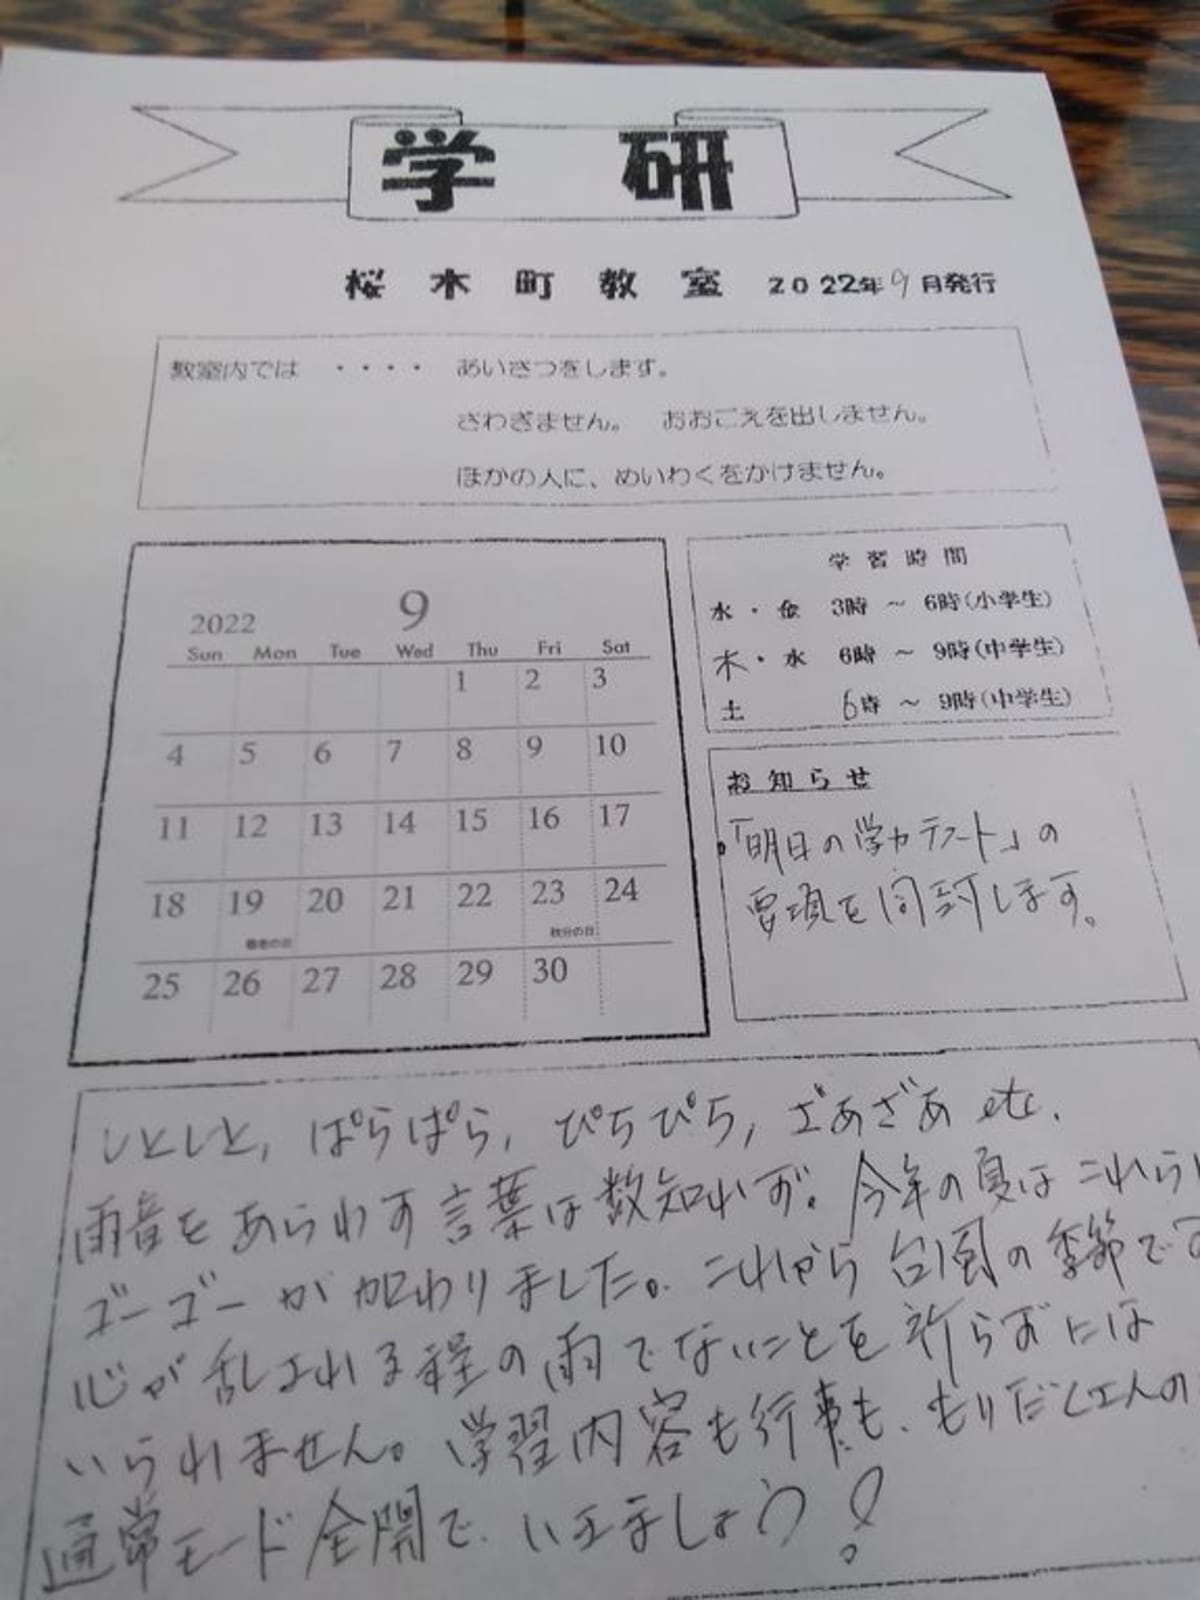 学研
桜木町教室 2022年9月発行
教室内では ・・・・ あいさつをします。
さわぎません。 おおごえを出しません。
ほかの人に、めいわくをかけません。
2022 9
Sun Mon Tue Wed Thu Fri Sat
1 2 3
4 5 6 7 8 9 10
11 12 13 14 15 16 17
18 19 20 21 22 23 24
敬老の日 秋分の日
25 26 27 28 29 30
学習時間
水・金 3時 ～ 6時(小学生)
木・水 6時 ～ 9時(中学生)
土 6時 ～ 9時(中学生)
お知らせ
・「明日の学力テスト」の
要項を同封します。
しとしと, ぱらぱら, ぴちぴち, ざあざあ etc.
雨音をあらわす言葉は数知れず。今年の夏はこれらに
ゴーゴーが加わりました。これから台風の季節です
心が乱される程の雨でないことを祈らずには
いられません。学習内容も行事も、もりだくさんの
通常モード全開で、いきましょう！